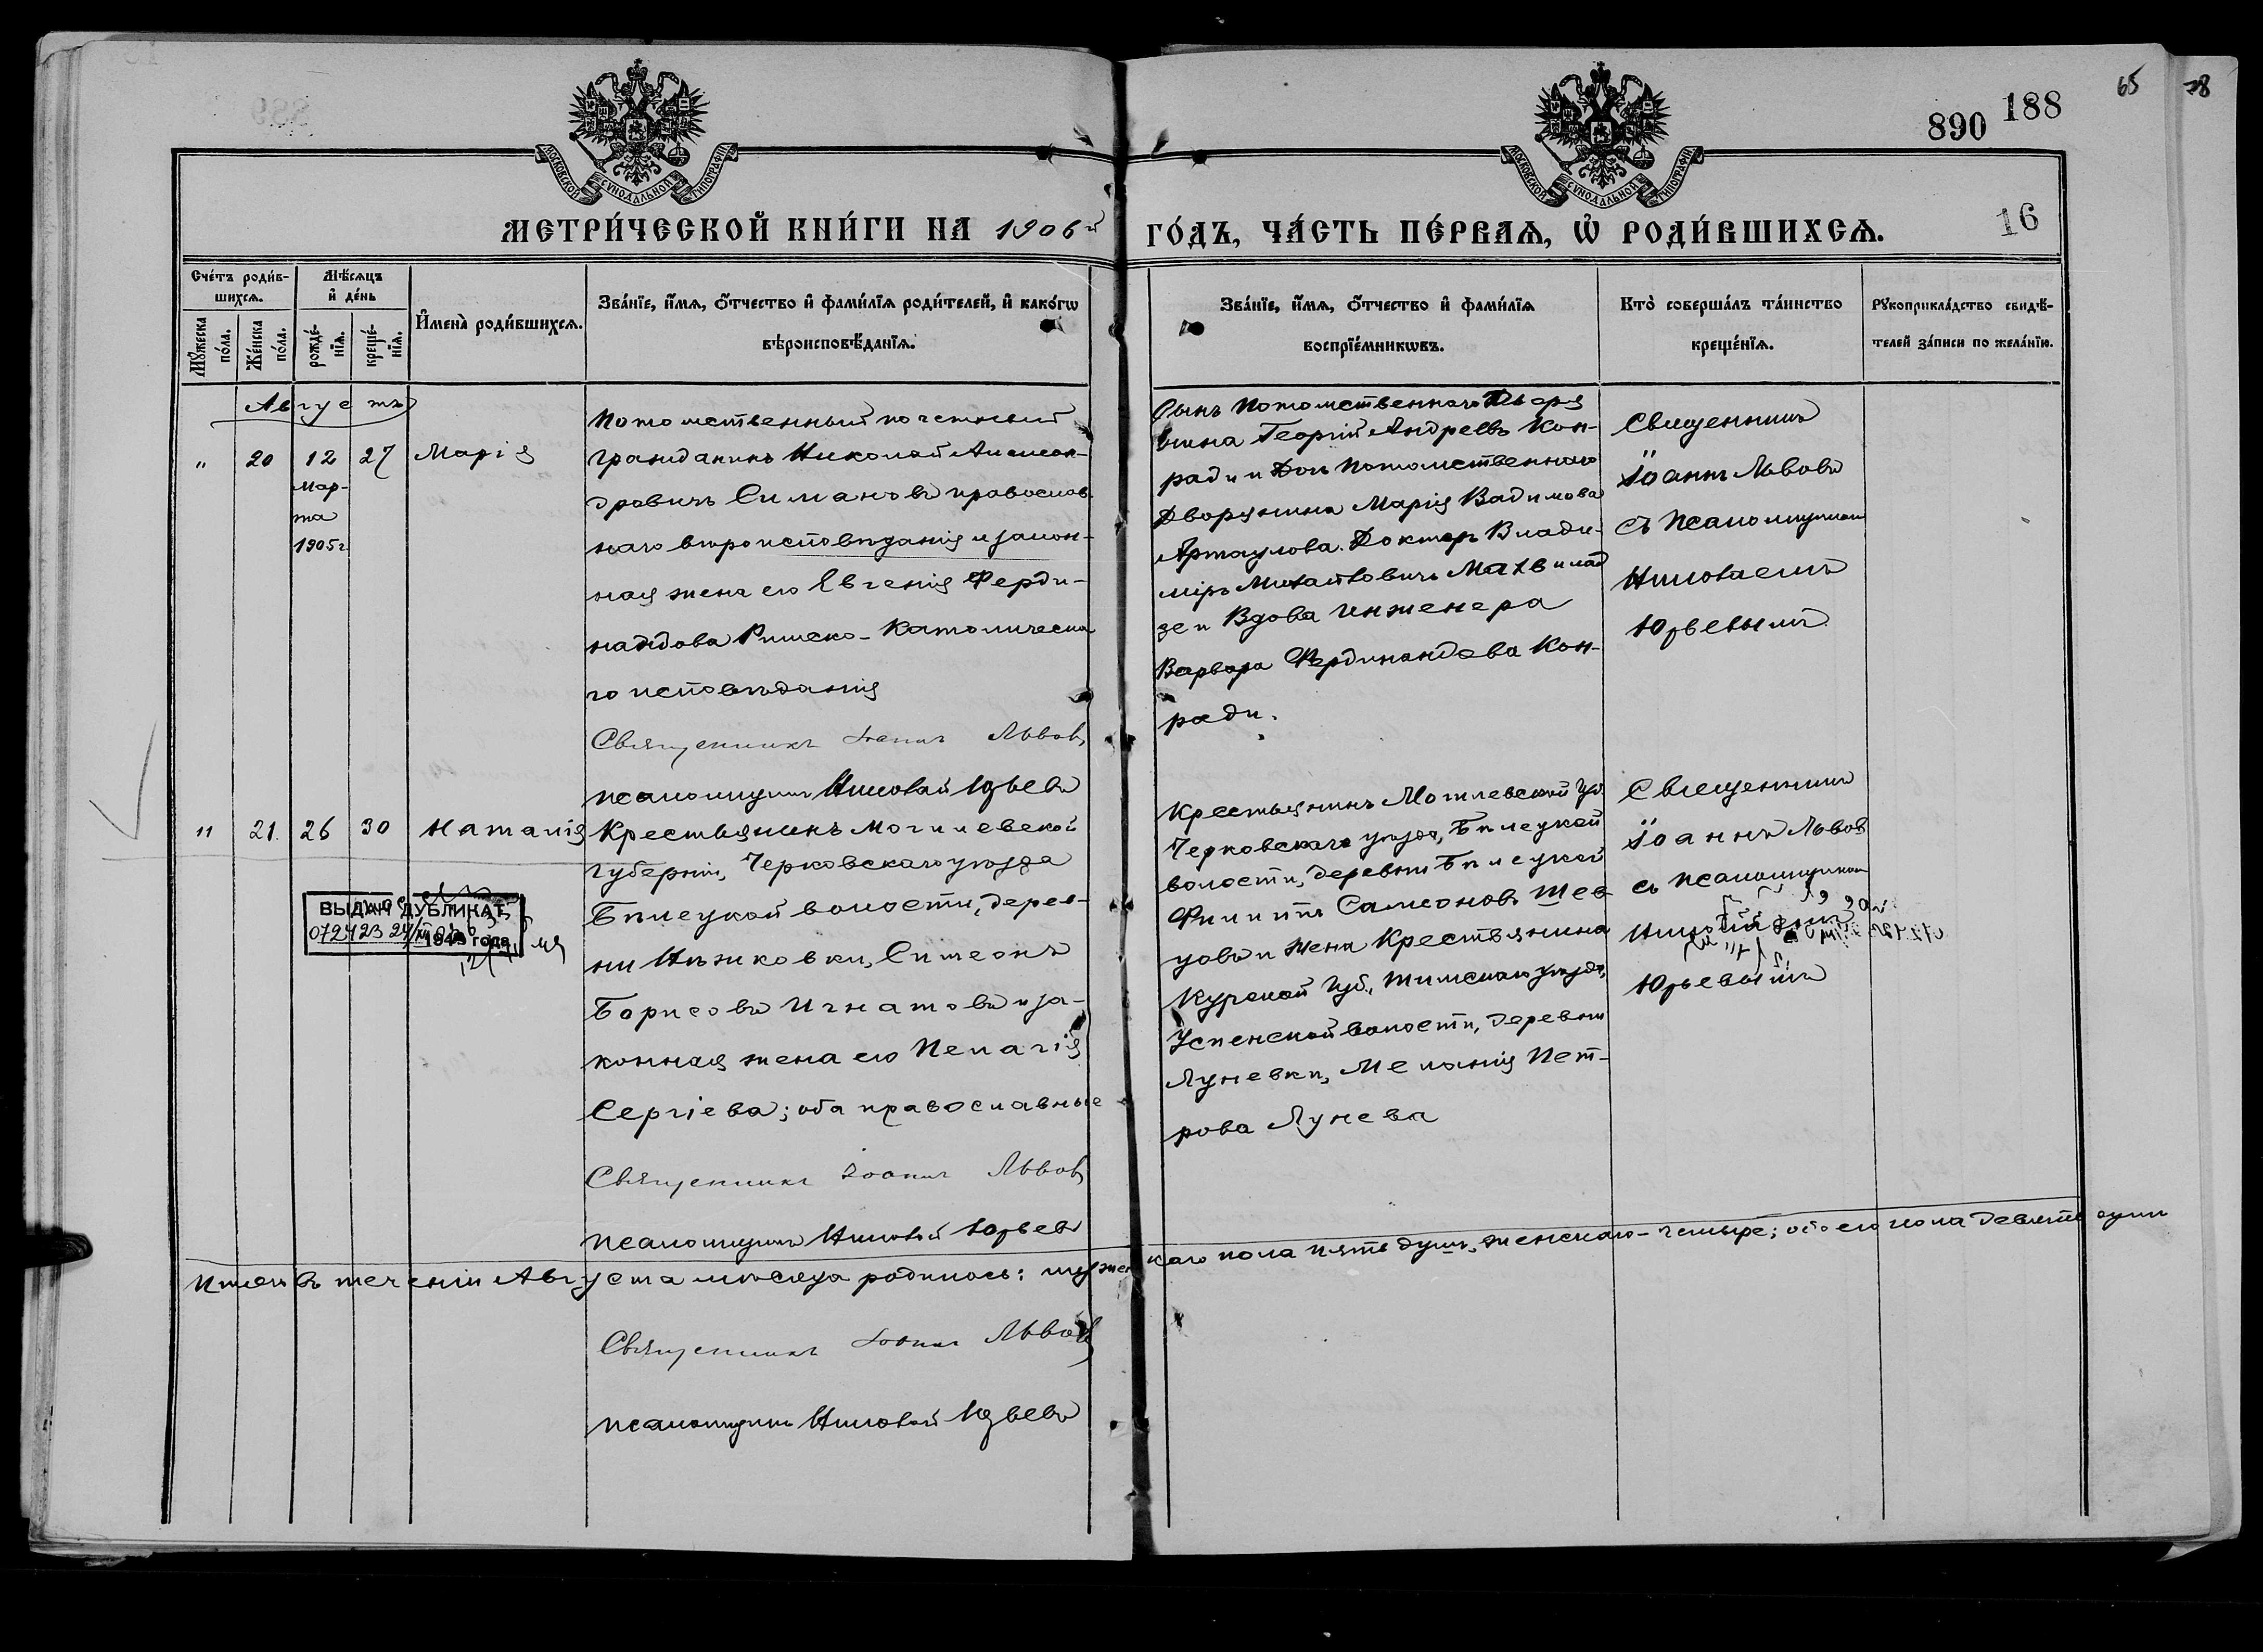 65
78
890
188
МОСКОВСКОЙ СУНОДАЛЬНОЙ ТИПОГРАФІИ
МОСКОВСКОЙ СУНОДАЛЬНОЙ ТИПОГРАФІИ
МЕТРИ́ЧЕСКОЙ КНИ́ГИ НА 1906й
ГО́ДЪ, ЧА́СТЬ ПЕ́РВАѦ, Ѡ҆ РОДИ́ВШИХСѦ.
16
Сче́тъ роди́в-
шихсѧ.
Мꙋ́жеска по́ла.
Же́нска по́ла.
Мѣ́сѧцъ
и҆ де́нь
рожде́-
нїѧ.
креще́-
нїѧ.
И҆мена̀ роди́вшихсѧ.
Зва́нїе, и҆́мѧ, ѻ҆́тчество и҆ фами́лїѧ роди́телей, и҆ како́гѡ
вѣроисповѣ́данїѧ.
Зва́нїе, и҆́мѧ, ѻ҆́тчество и҆ фами́лїѧ
воспрїе́мникѡвъ.
Кто̀ соверша́лъ та́инство
креще́нїѧ.
Рꙋкоприкла́дство свидѣ́-
телей за́писи по жела́нїю.
Августъ
" 20 12 27 Марія
Мар-
та
1905г.
Потомственный почетный
гражданинъ Николай Алексан-
дровичъ Симановъ православ-
наго вѣроисповѣданія и закон-
ная жена его Евгенія Ферди-
нандова Римско-Католическа
го исповѣданія
Священникъ Іоаннъ Львовъ
псаломщикъ Николай Юрьевъ
Сынъ Потомственнаго Дворя
нина Георгій Андреевъ Кон-
ради и Дочь потомственнаго
Дворянина Марія Вадимова
Артаулова. Докторъ Влади-
міръ Михайловичъ Махвилад
зе и Вдова Инженера
Варвара Фердинандова Кон-
ради.
Священникъ
Іоаннъ Львовъ
съ псаломщикомъ
Николаемъ
Юрьевымъ
" 21. 26 30 Наталія
ВЫДАН ДУБЛИКАТ
072423 24/
1949 года
Крестьянинъ Могилевской
губерніи, Черковскаго уѣзда
Бѣлецкой волости, дерев-
ни Нѣжковки, Симеонъ
Борисовъ Игнатовъ и за-
конная жена его Пелагія
Сергіева; оба православные
Священникъ Іоаннъ Львовъ
псаломщикъ Николай Юрьевъ
Крестьянинъ Могилевской Губ.
Черковскаго уѣзда, Бѣлецкой
волости, деревни Бѣлецкой
Филиппъ Самсоновъ Шев
цовъ и жена Крестьянина
Курской Губ., Тимскаго уѣзда,
Успенской волости, деревни
Луневки, Меланія Пет-
рова Лунева
Священникъ
Іоаннъ Львовъ
съ псаломщикомъ
Юрьевымъ
Итого въ теченіи Августа мѣсяца родилось: мужескаго пола пять душъ, женскаго-четыре; обоего пола девять душъ
Священникъ Іоаннъ Львовъ
псаломщикъ Николай Юрьевъ